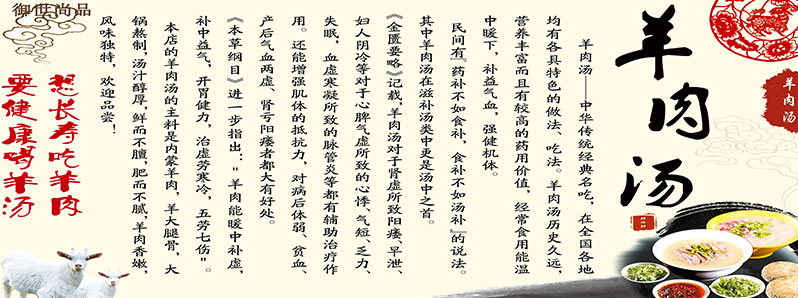 羊肉汤
羊肉汤
羊肉汤——中华传统经典名吃，在全国各地
均有各具特色的做法、吃法。羊肉汤历史久远，
营养丰富而且有较高的药用价值，经常食用能温
中暖下，补益气血，强健机体。
民间有『药补不如食补，食补不如汤补』的说法。
其中羊肉汤在滋补汤类中更是汤中之首。
《金匮要略》记载，羊肉汤对于肾虚所致阳痿、早泄、
妇人阴冷等对于心脾气虚所致的心悸、气短、乏力、
失眠，血虚寒凝所致的脉管炎等都有辅助治疗作
用。还能增强肌体的抵抗力，对病后体弱、贫血、
产后气血两虚、肾亏阳痿者都大有好处。
《本草纲目》进一步指出："羊肉能暖中补虚，
补中益气，开胃健力，治虚劳寒冷，五劳七伤"。
本店的羊肉汤的主料是内蒙羊肉，羊大腿骨，大
锅熬制，汤汁醇厚，鲜而不膻，肥而不腻，羊肉香嫩，
风味独特，欢迎品尝！
想长寿吃羊肉
要健康喝羊汤
御世尚品